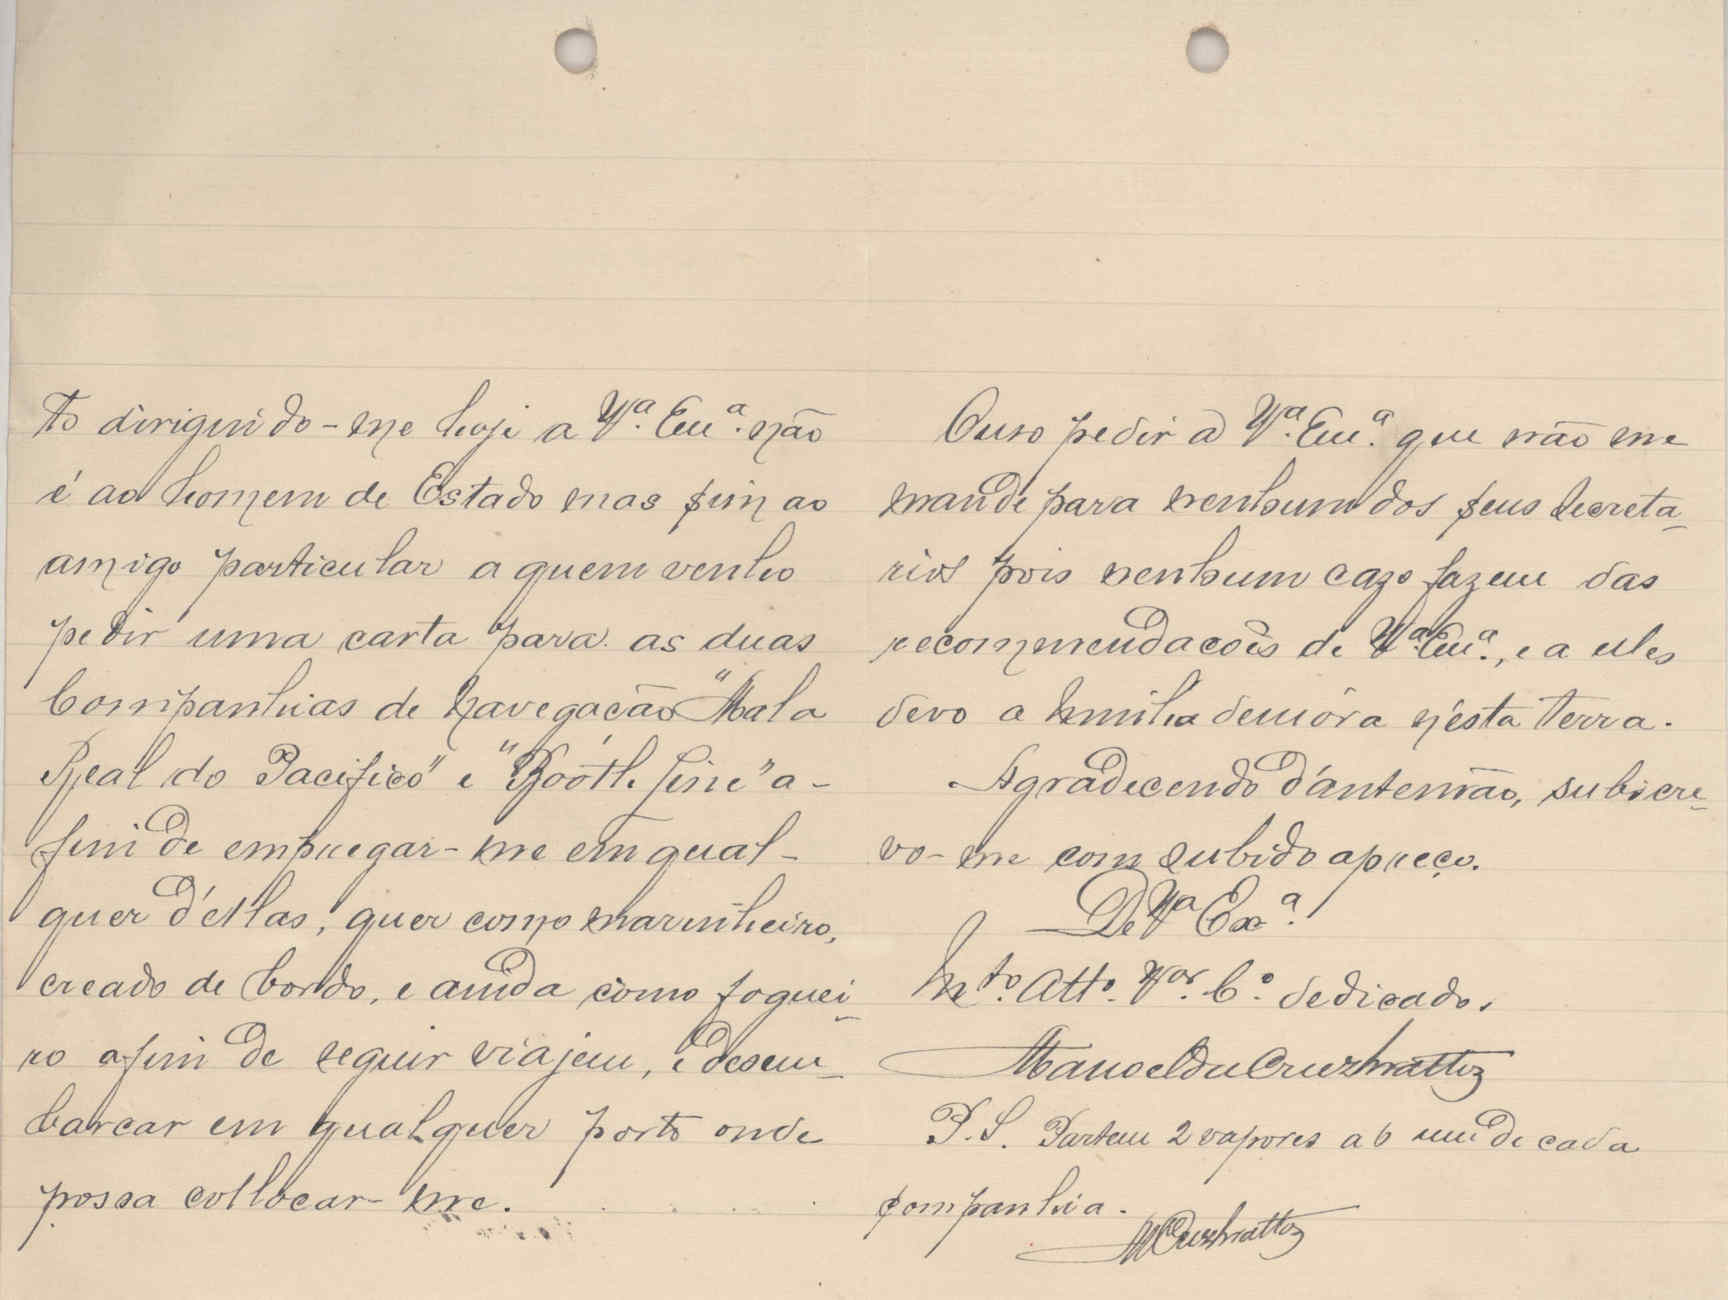 to dirigindo-me hoje a Vª. Exª. não
é ao homem de Estado mas sim ao
amigo particular a quem venho
pedir uma carta para as duas
Companhias de Navegação "Mala
Real do Pacifico" e "Booth Line" a-
fim de empregar-me em qual-
quer d'ellas, quer como marinheiro,
creado de bordo, e ainda como foguei-
ro afim de seguir viajem, e desem-
barcar em qualquer porto onde
possa collocar-me.
Ouso pedir a Vª. Exª. que não me
mande para nenhum dos seus secreta-
rios pois nenhum cazo fazem das
recommendacões de Vª. Exª., e a elles
devo a minha demóra n'esta terra.
Agradecendo d'antemão, subscre-
vo-me com subido apreço.
De Vª Exª.
Mto. Atto. Vor. Cº. dedicado,
Manoel da Cruz Mattoz
P.S. Partem 2 vapores a 6 um de cada
companhia.
MCruz Mattoz